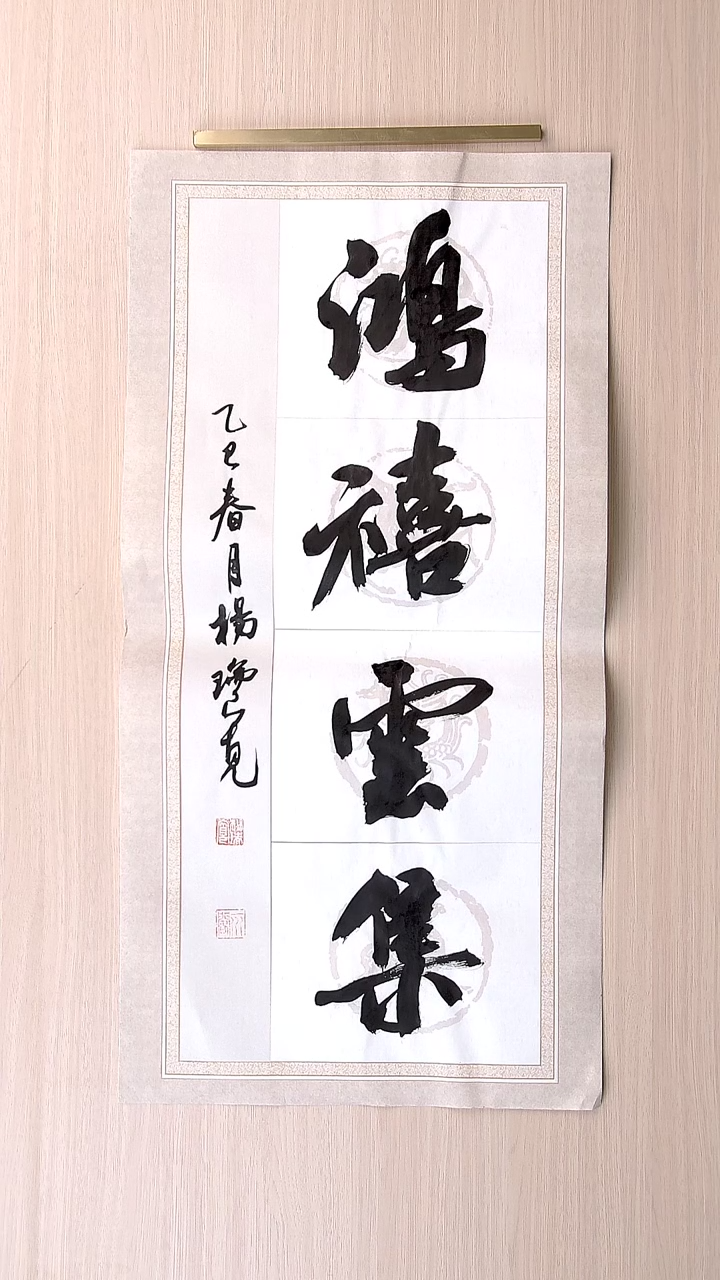 鴻禧雲集
乙巳春月楊瓊